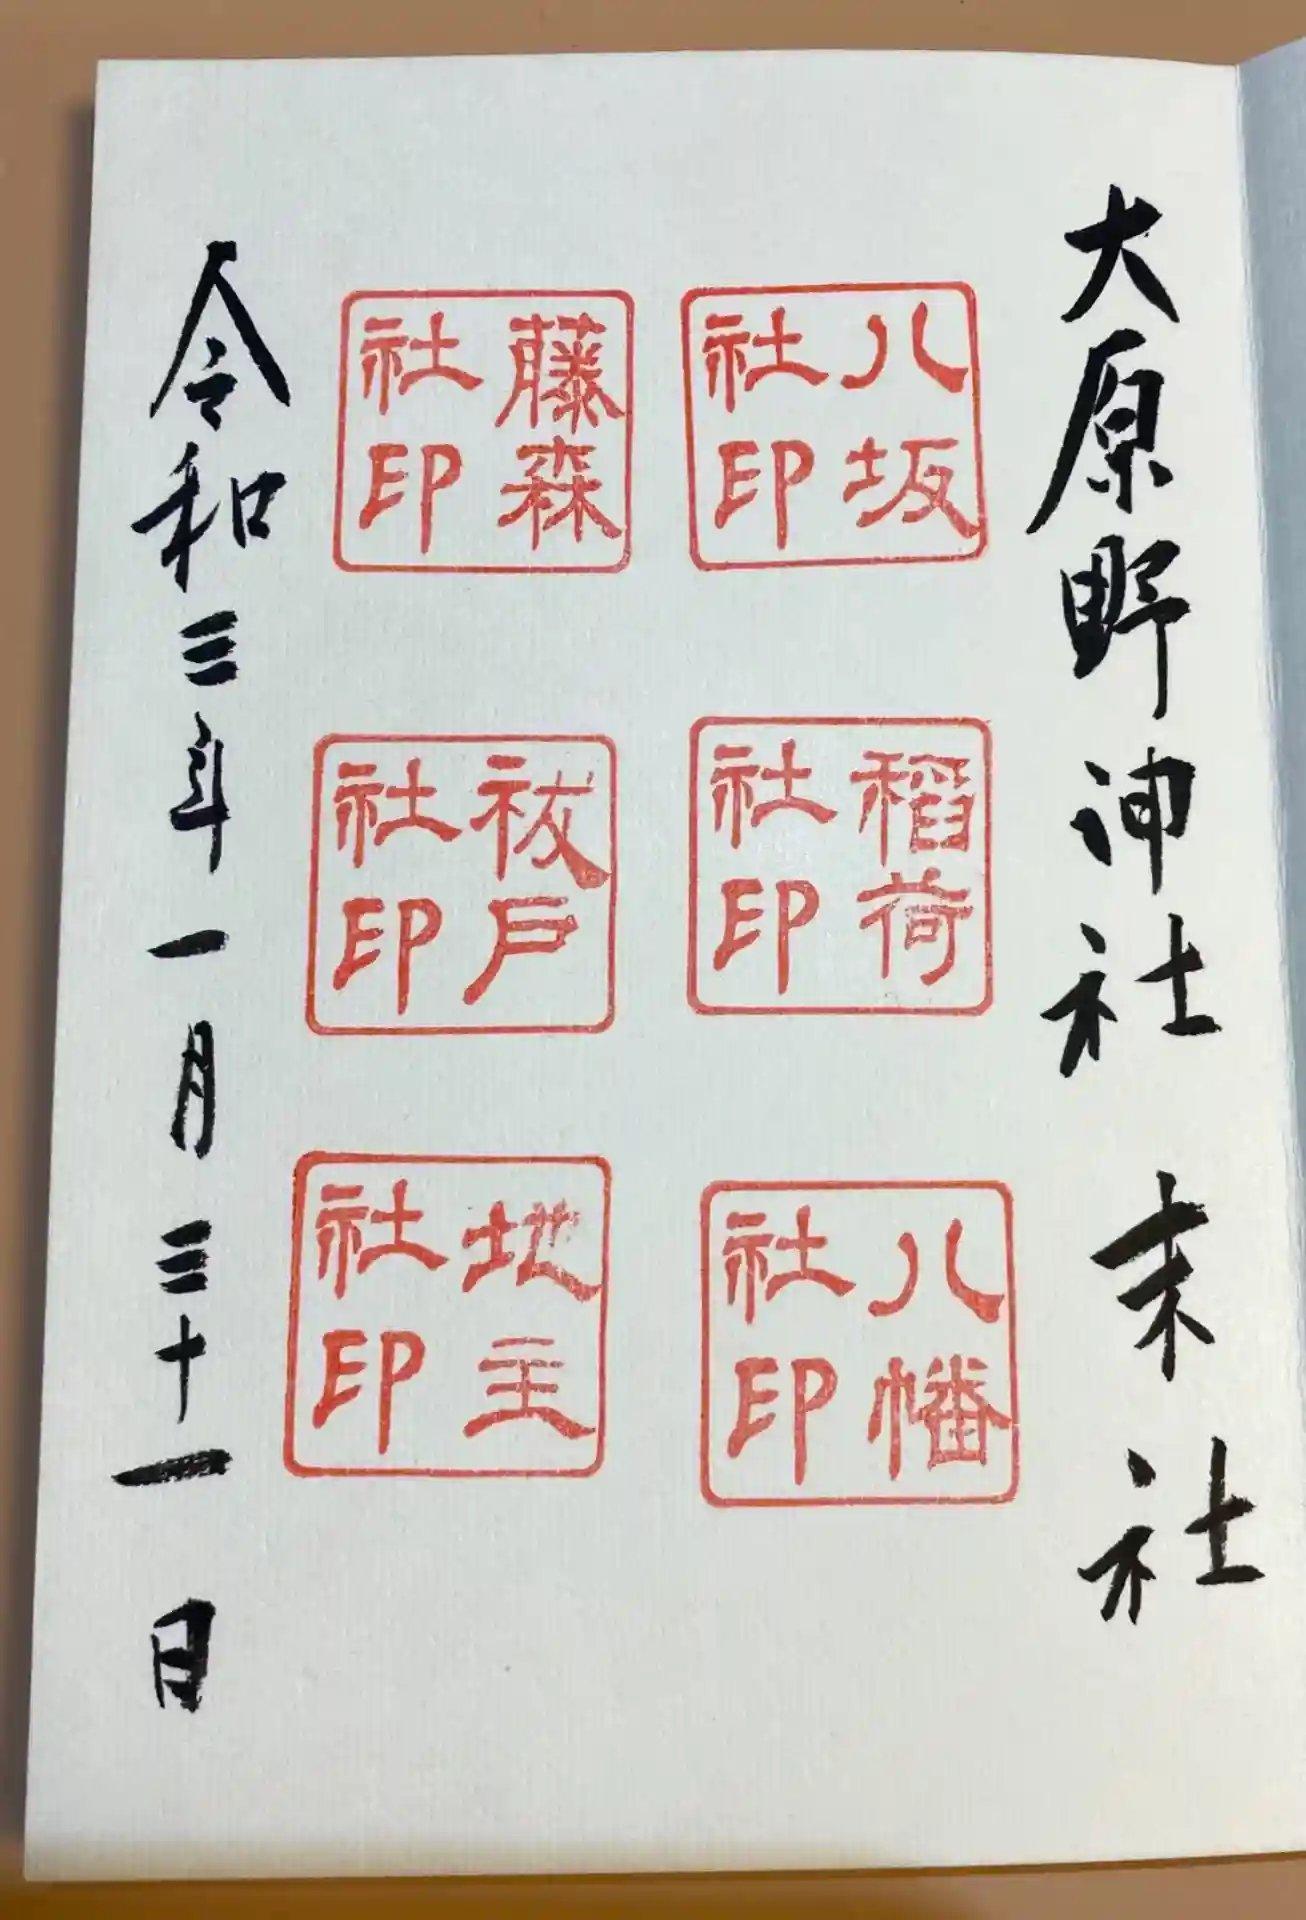 大原野神社 末社
八坂社印
稲荷社印
八幡社印
藤森社印
祓戸社印
地主社印
令和三年一月三十一日